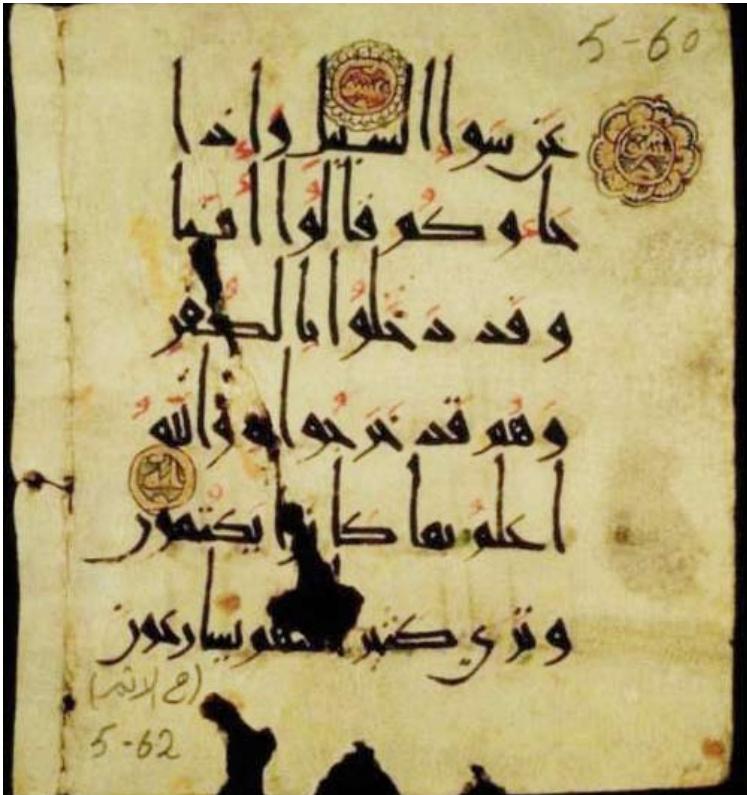 5-60
عن سوا السبيل واذا
جاوكم قالوا امنا
وقد دخلوا بالكفر
وهم قد خرجوا به والله
اعلم بما كانوا يكتمون
وترى كثيرا منهم يسارعون
(في الاثم)
5-62